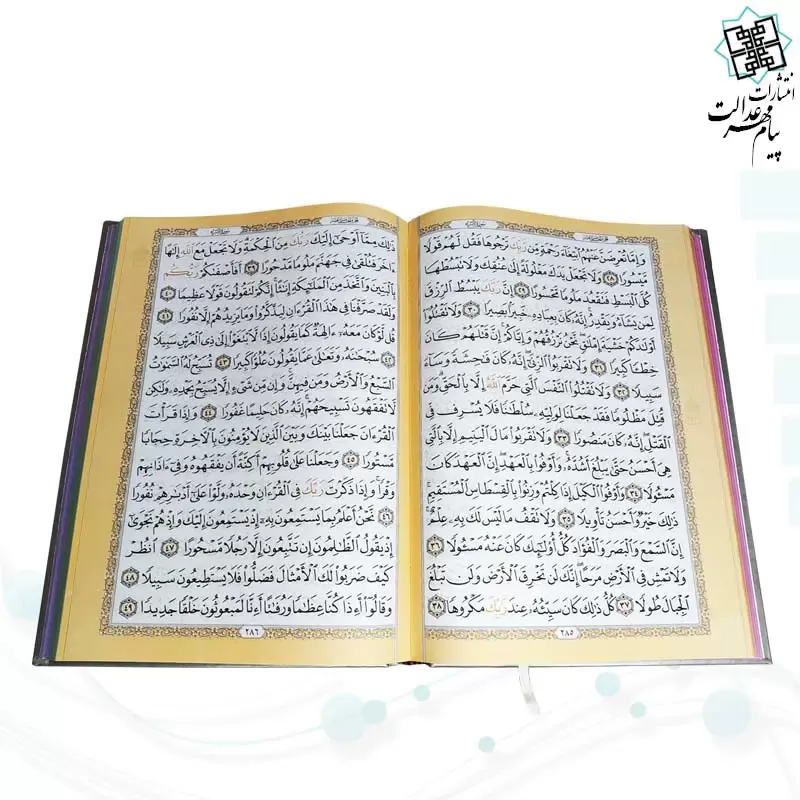 انتشارات
پیام مهر عدالت
وَإِمَّا تُعْرِضَنَّ عَنْهُمُ ٱبْتِغَآءَ رَحْمَةٍ مِّن رَّبِّكَ تَرْجُوهَا فَقُل لَّهُمْ قَوْلًا
مَّيْسُورًا ٢٨ وَلَا تَجْعَلْ يَدَكَ مَغْلُولَةً إِلَىٰ عُنُقِكَ وَلَا تَبْسُطْهَا
كُلَّ ٱلْبَسْطِ فَتَقْعُدَ مَلُومًا مَّحْسُورًا ٢٩ إِنَّ رَبَّكَ يَبْسُطُ ٱلرِّزْقَ
لِمَن يَشَآءُ وَيَقْدِرُ إِنَّهُۥ كَانَ بِعِبَادِهِۦ خَبِيرًۢا بَصِيرًا ٣٠ وَلَا تَقْتُلُوٓا۟
أَوْلَٰدَكُمْ خَشْيَةَ إِمْلَٰقٍ نَّحْنُ نَرْزُقُهُمْ وَإِيَّاكُمْ إِنَّ قَتْلَهُمْ كَانَ
خِطْـًٔا كَبِيرًا ٣١ وَلَا تَقْرَبُوا۟ ٱلزِّنَىٰٓ إِنَّهُۥ كَانَ فَٰحِشَةً وَسَآءَ
سَبِيلًا ٣٢ وَلَا تَقْتُلُوا۟ ٱلنَّفْسَ ٱلَّتِى حَرَّمَ ٱللَّهُ إِلَّا بِٱلْحَقِّ وَمَن
قُتِلَ مَظْلُومًا فَقَدْ جَعَلْنَا لِوَلِيِّهِۦ سُلْطَٰنًا فَلَا يُسْرِف فِّى
ٱلْقَتْلِ إِنَّهُۥ كَانَ مَنصُورًا ٣٣ وَلَا تَقْرَبُوا۟ مَالَ ٱلْيَتِيمِ إِلَّا بِٱلَّتِى
هِىَ أَحْسَنُ حَتَّىٰ يَبْلُغَ أَشُدَّهُۥ وَأَوْفُوا۟ بِٱلْعَهْدِ إِنَّ ٱلْعَهْدَ كَانَ
مَسْـُٔولًا ٣٤ وَأَوْفُوا۟ ٱلْكَيْلَ إِذَا كِلْتُمْ وَزِنُوا۟ بِٱلْقِسْطَاسِ ٱلْمُسْتَقِيمِ
ذَٰلِكَ خَيْرٌ وَأَحْسَنُ تَأْوِيلًا ٣٥ وَلَا تَقْفُ مَا لَيْسَ لَكَ بِهِۦ عِلْمٌ
إِنَّ ٱلسَّمْعَ وَٱلْبَصَرَ وَٱلْفُؤَادَ كُلُّ أُو۟لَٰٓئِكَ كَانَ عَنْهُ مَسْـُٔولًا ٣٦
وَلَا تَمْشِ فِى ٱلْأَرْضِ مَرَحًا إِنَّكَ لَن تَخْرِقَ ٱلْأَرْضَ وَلَن تَبْلُغَ
ٱلْجِبَالَ طُولًا ٣٧ كُلُّ ذَٰلِكَ كَانَ سَيِّئُهُۥ عِندَ رَبِّكَ مَكْرُوهًا ٣٨
٢٨٥
ذَٰلِكَ مِمَّآ أَوْحَىٰٓ إِلَيْكَ رَبُّكَ مِنَ ٱلْحِكْمَةِ وَلَا تَجْعَلْ مَعَ ٱللَّهِ إِلَٰهًا
ءَاخَرَ فَتُلْقَىٰ فِى جَهَنَّمَ مَلُومًا مَّدْحُورًا ٣٩ أَفَأَصْفَىٰكُمْ رَبُّكُم
بِٱلْبَنِينَ وَٱتَّخَذَ مِنَ ٱلْمَلَٰٓئِكَةِ إِنَٰثًا إِنَّكُمْ لَتَقُولُونَ قَوْلًا عَظِيمًا ٤٠
وَلَقَدْ صَرَّفْنَا فِى هَٰذَا ٱلْقُرْءَانِ لِيَذَّكَّرُوا۟ وَمَا يَزِيدُهُمْ إِلَّا نُفُورًا ٤١
قُل لَّوْ كَانَ مَعَهُۥٓ ءَالِهَةٌ كَمَا يَقُولُونَ إِذًا لَّٱبْتَغَوْا۟ إِلَىٰ ذِى ٱلْعَرْشِ سَبِيلًا
٤٢ سُبْحَٰنَهُۥ وَتَعَٰلَىٰ عَمَّا يَقُولُونَ عُلُوًّا كَبِيرًا ٤٣ تُسَبِّحُ لَهُ ٱلسَّمَٰوَٰتُ
ٱلسَّبْعُ وَٱلْأَرْضُ وَمَن فِيهِنَّ وَإِن مِّن شَىْءٍ إِلَّا يُسَبِّحُ بِحَمْدِهِۦ وَلَٰكِن
لَّا تَفْقَهُونَ تَسْبِيحَهُمْ إِنَّهُۥ كَانَ حَلِيمًا غَفُورًا ٤٤ وَإِذَا قَرَأْتَ
ٱلْقُرْءَانَ جَعَلْنَا بَيْنَكَ وَبَيْنَ ٱلَّذِينَ لَا يُؤْمِنُونَ بِٱلْءَاخِرَةِ حِجَابًا
مَّسْتُورًا ٤٥ وَجَعَلْنَا عَلَىٰ قُلُوبِهِمْ أَكِنَّةً أَن يَفْقَهُوهُ وَفِىٓ ءَاذَانِهِمْ
وَقْرًا وَإِذَا ذَكَرْتَ رَبَّكَ فِى ٱلْقُرْءَانِ وَحْدَهُۥ وَلَّوْا۟ عَلَىٰٓ أَدْبَٰرِهِمْ نُفُورًا
٤٦ نَّحْنُ أَعْلَمُ بِمَا يَسْتَمِعُونَ بِهِۦٓ إِذْ يَسْتَمِعُونَ إِلَيْكَ وَإِذْ هُمْ نَجْوَىٰٓ
إِذْ يَقُولُ ٱلظَّٰلِمُونَ إِن تَتَّبِعُونَ إِلَّا رَجُلًا مَّسْحُورًا ٤٧ ٱنظُرْ
كَيْفَ ضَرَبُوا۟ لَكَ ٱلْأَمْثَالَ فَضَلُّوا۟ فَلَا يَسْتَطِيعُونَ سَبِيلًا ٤٨
وَقَالُوٓا۟ أَءِذَا كُنَّا عِظَٰمًا وَرُفَٰتًا أَءِنَّا لَمَبْعُوثُونَ خَلْقًا جَدِيدًا ٤٩
٢٨٦